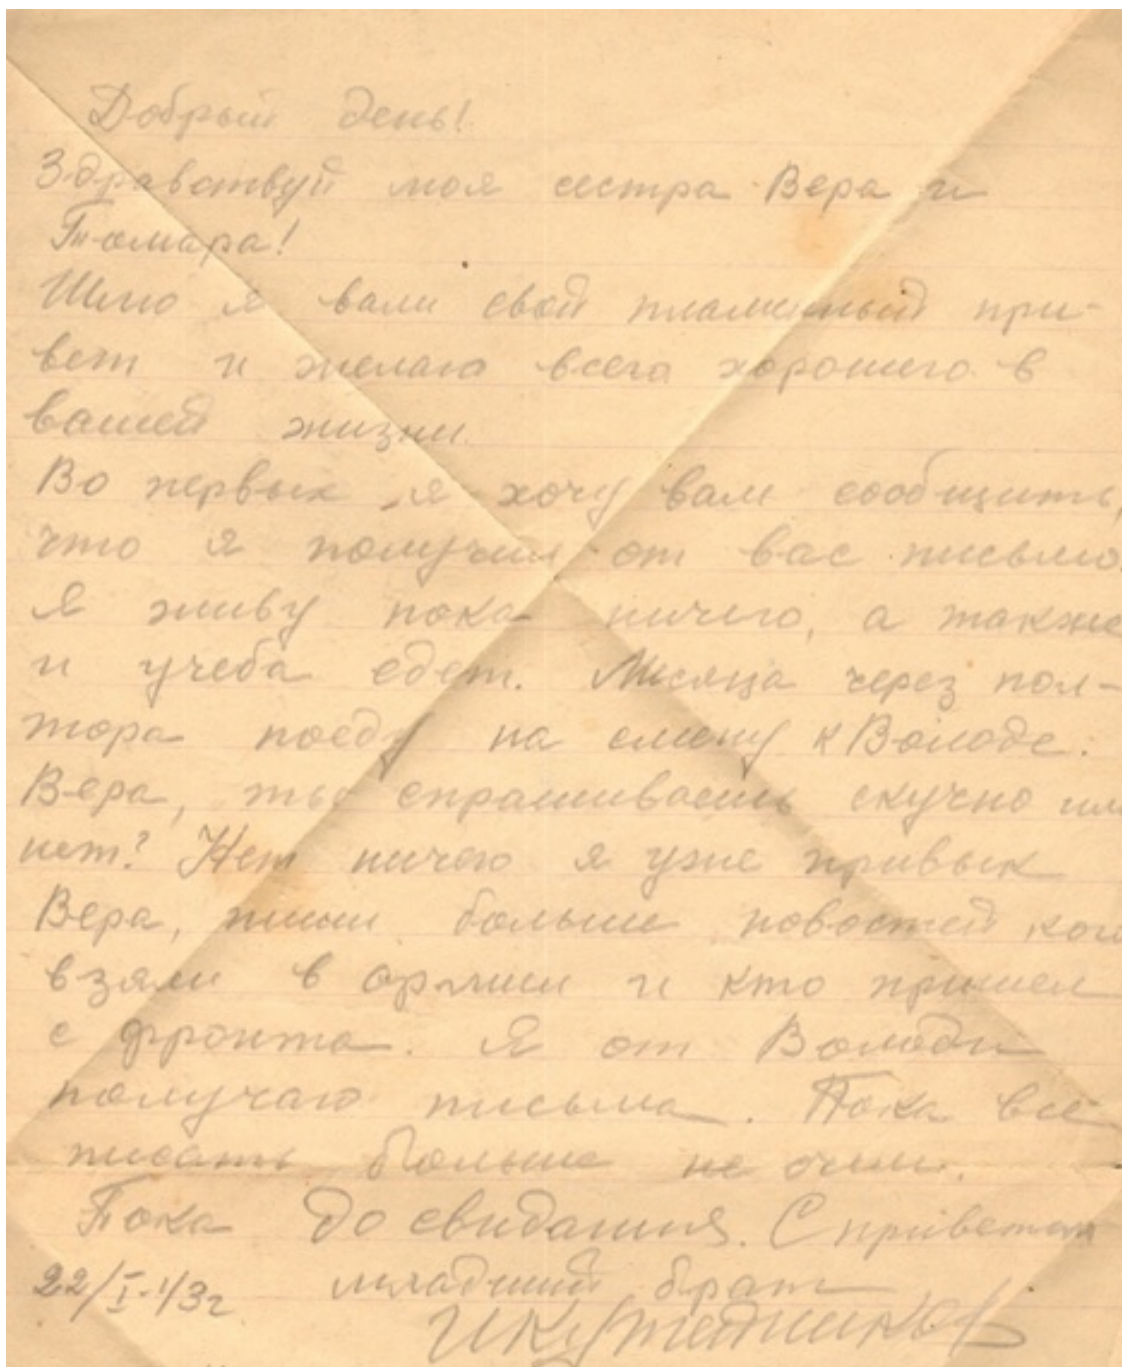 Добрый день!
Здравствуй моя сестра Вера и
Тамара!
Шлю я вам свой пламенный при-
вет и желаю всего хорошего в
вашей жизни.
Во первых, я хочу вам сообщить,
что я получил от вас письмо.
Я живу пока ничего, а также
и учеба едет. Месяца через пол-
тора поеду на смену к Володе.
Вера, ты спрашиваешь скучно или
нет? Нет ничего я уже привык
Вера, пиши больше новостей кого
взяли в армии и кто пришел
с фронта. Я от Володи
получаю письма. Пока все
писать больше не
Пока до свидания. С приветом
младший брат
22/I-43г